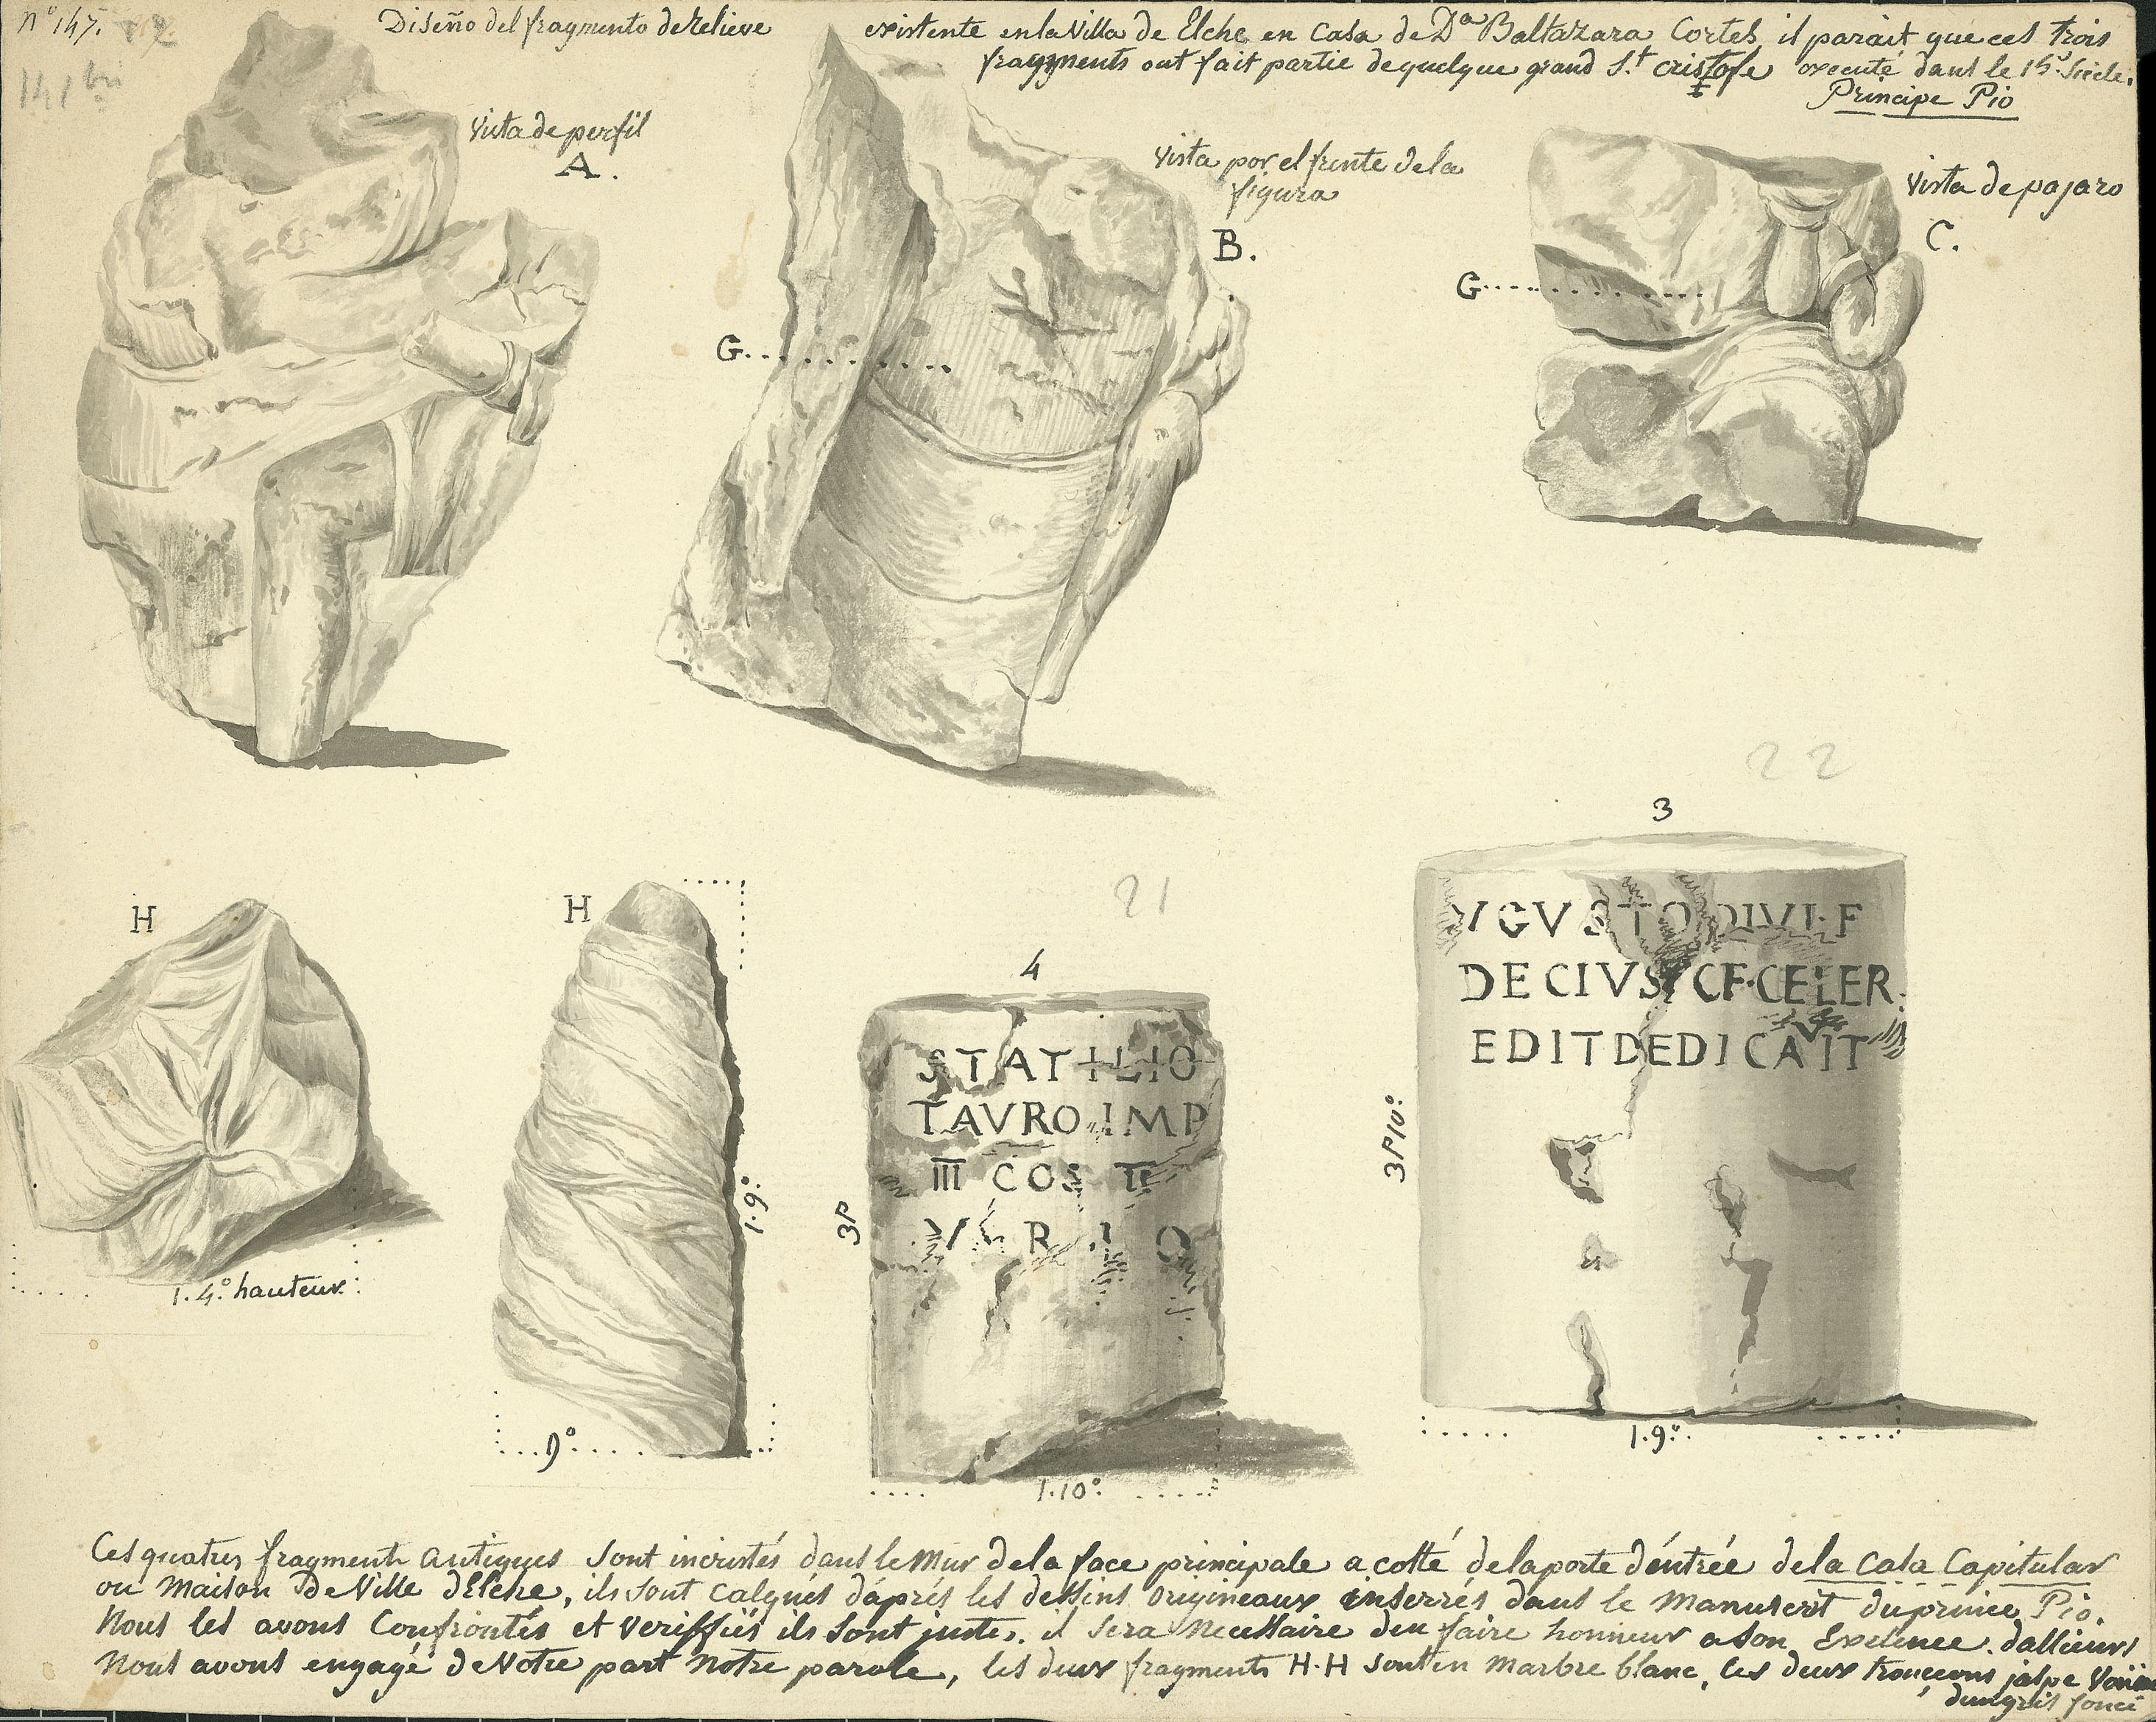 nº 147.
141 bis
Diseño del fragmento de relieve existente en la Villa de Elche en Casa de Dª Baltazara Cortes il parait que ces trois
fragments ont fait partie de quelque grand S.t cristofe execute dans le 15º Siecle.
Principe Pio
Vista de perfil
A.
Vista por el frente de la
figura
B.
Vista de pajaro
C.
G
G
22
21
3
VGVSTO DIVI·F
DECIVS CF·CELER
EDITDEDICAVIT
3P10º
1·9º
4
STATILIO
TAVRO IMP
III COS TE
V R I O
3P
1·10º
H
1·4º hauteur
H
1·9º
9º
Ces quatres fragments antiques sont incrustés dans le Mur de la face principale a cotté de la porte d'entrée de la Casa Capitular
ou Maison De Ville d'Elche, ils sont calqués d'aprés les dessins origineaux inserrés dans le Manuscrit du prince Pio.
Nous les avons Confrontés et veriffiés ils sont justes. il sera Necessaire d'en faire honneur a son Exelence. dallieurs
Nous avons engagé de Notre part notre parole, les deux fragments H·H sont en Marbre blanc, les deux tronceons jaspe
d'un gris foncé